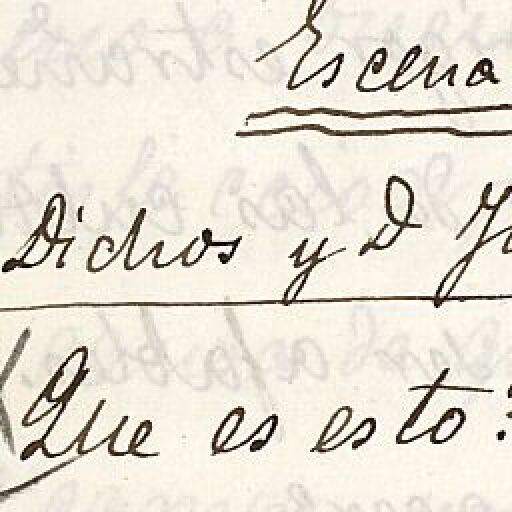 Escena
Dichos y D
Que es esto?